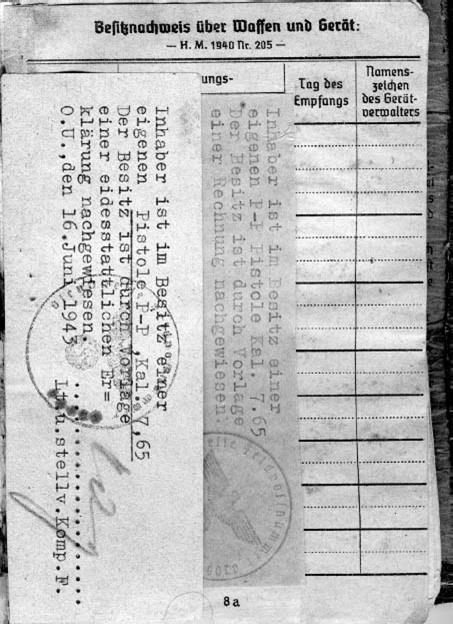 Besitznachweis über Waffen und Gerät:
— H. M. 1940 Nr. 205 —
ungs-
Tag des
Empfangs
Namens-
zeichen
des Gerät-
verwalters
Inhaber ist im Besitz einer
eigenen Pistole P-P, Kal. 7,65
Der Besitz ist durch Vorlage
einer eidesstattlichen Er=
klärung nachgewiesen.
O.U., den 16. Juni 1943
Lt. u. stellv. Komp. F.
Inhaber ist im Besitz einer
eigenen P-P Pistole Kal. 7.65
Der Besitz ist durch Vorlage
einer Rechnung nachgewiesen.
Feldpostnummer
8a